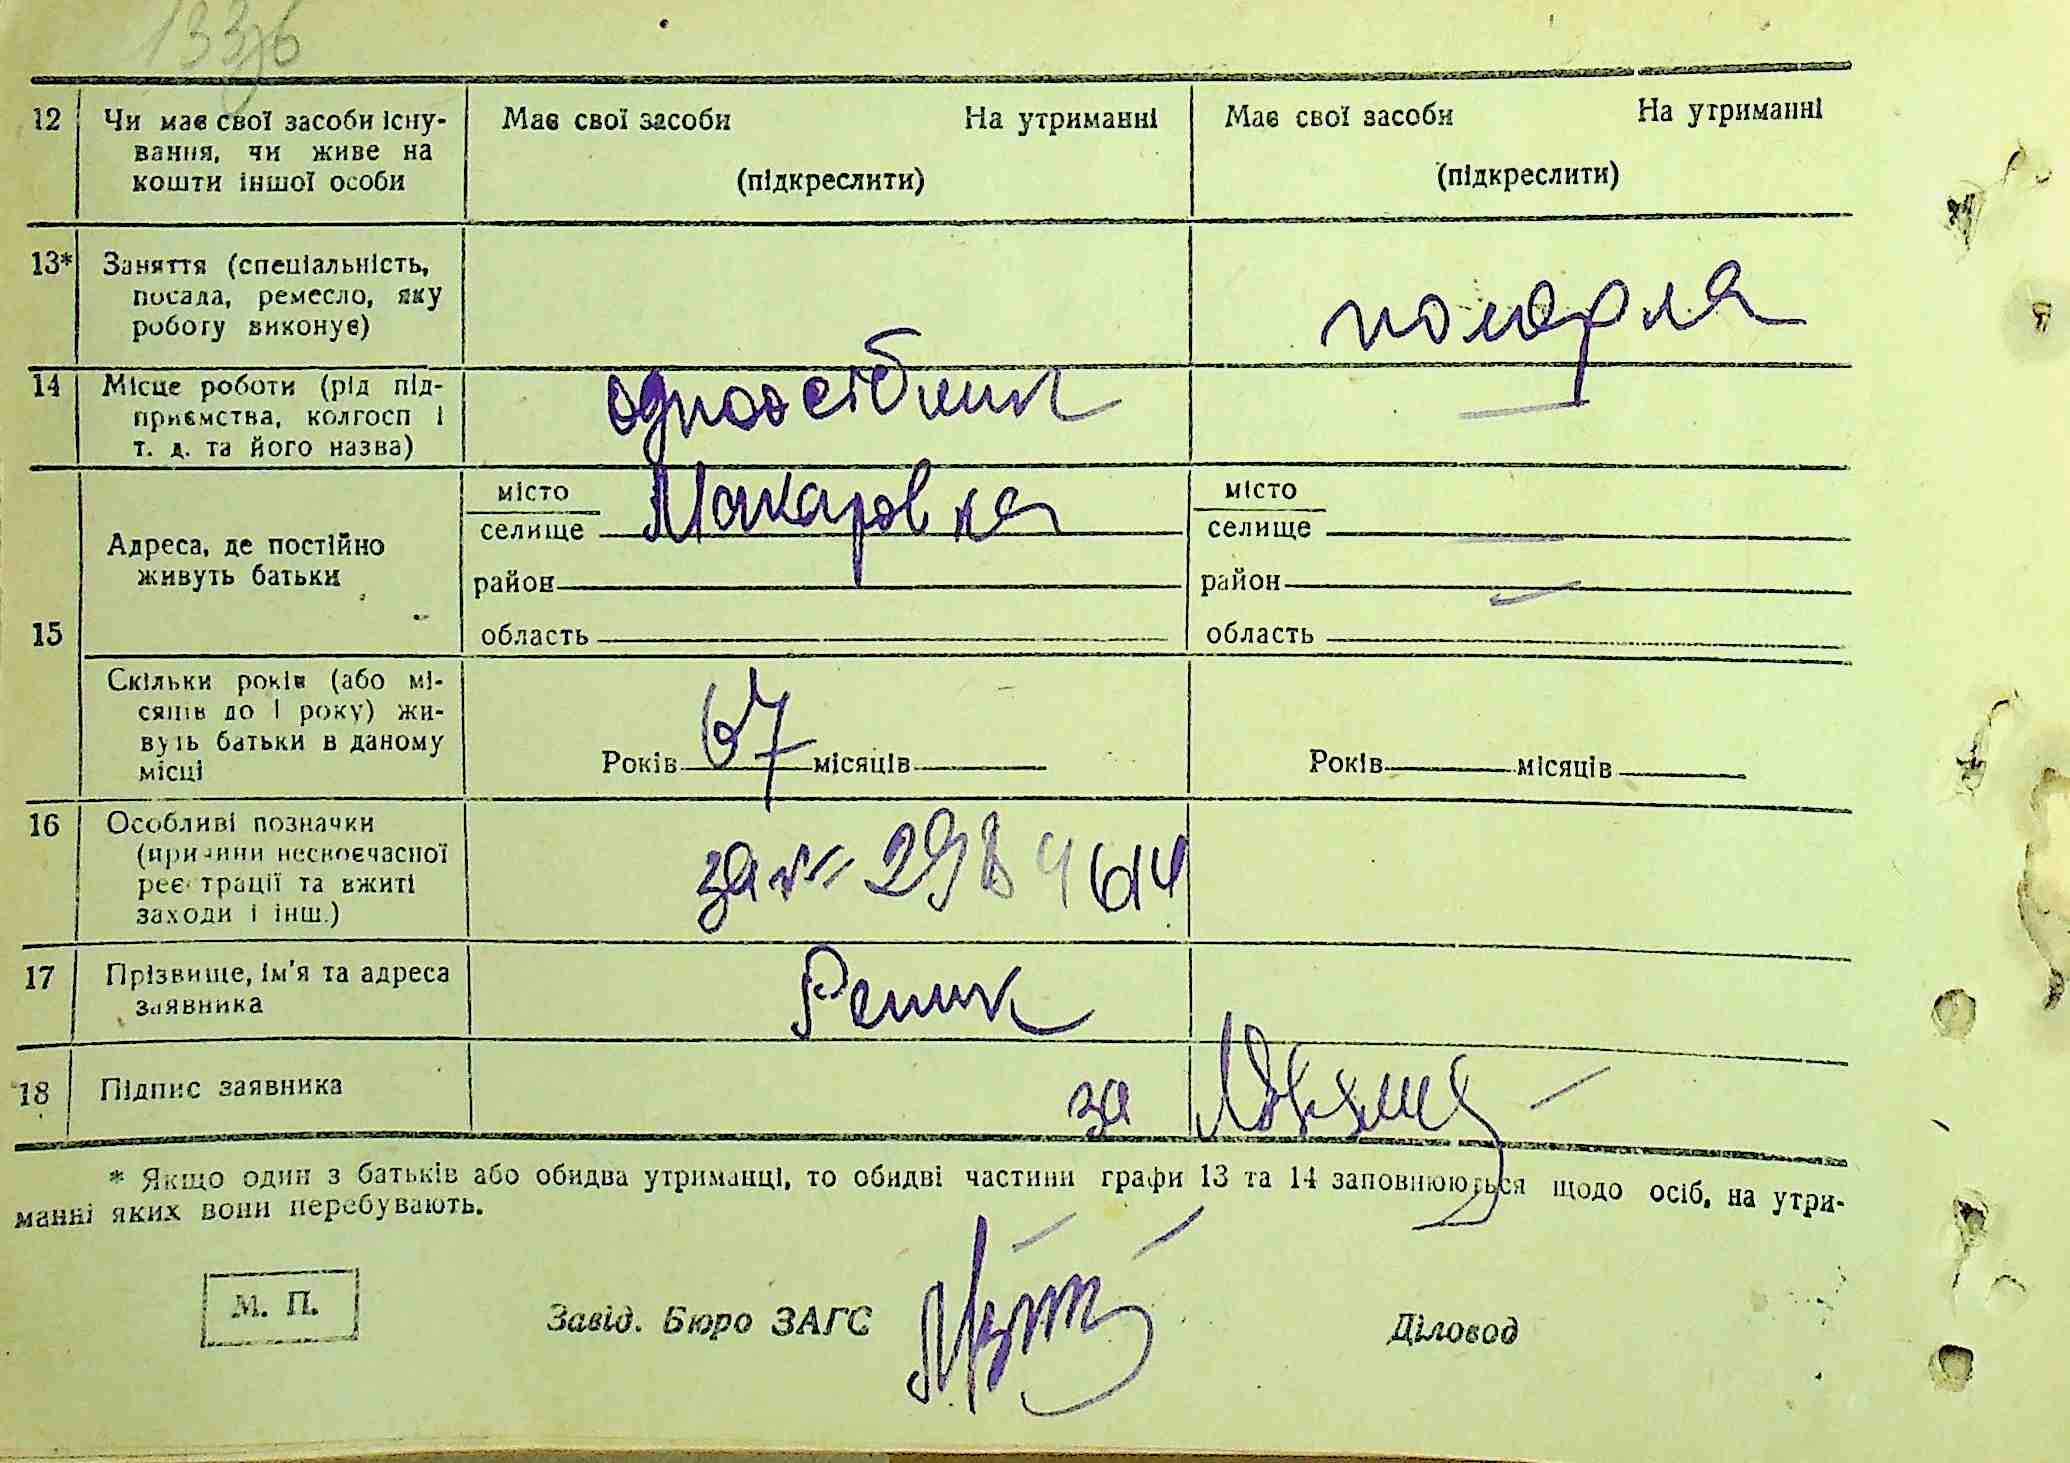 133
12 Чи має свої засоби існу-
вання, чи живе на
кошти іншої особи
Має свої засоби На утриманні
(підкреслити)
Має свої засоби На утриманні
(підкреслити)
13* Заняття (спеціальність,
посада, ремесло, яку
роботу виконує)
померла
14 Місце роботи (рід під-
приємства, колгосп і
т. д. та його назва)
одноосібник
15 Адреса, де постійно
живуть батьки
місто
селище Макаровка
район
область
місто
селище
район
область
Скільки років (або мі-
сяців до 1 року) жи-
вуть батьки в даному
місці
Років 67 місяців
Років місяців
16 Особливі позначки
(причини несвоєчасної
реєстрації та вжиті
заходи і інш.)
17 Прізвище, ім'я та адреса
заявника
Репик
18 Підпис заявника
за
* Якщо один з батьків або обидва утриманці, то обидві частини графи 13 та 14 заповнюються щодо осіб, на утри-
манні яких вони перебувають.
М. П.
Завід. Бюро ЗАГС
Діловод